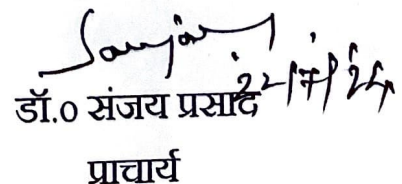 Sanjay
22/7/24
डॉ.0 संजय प्रसाद
प्राचार्य